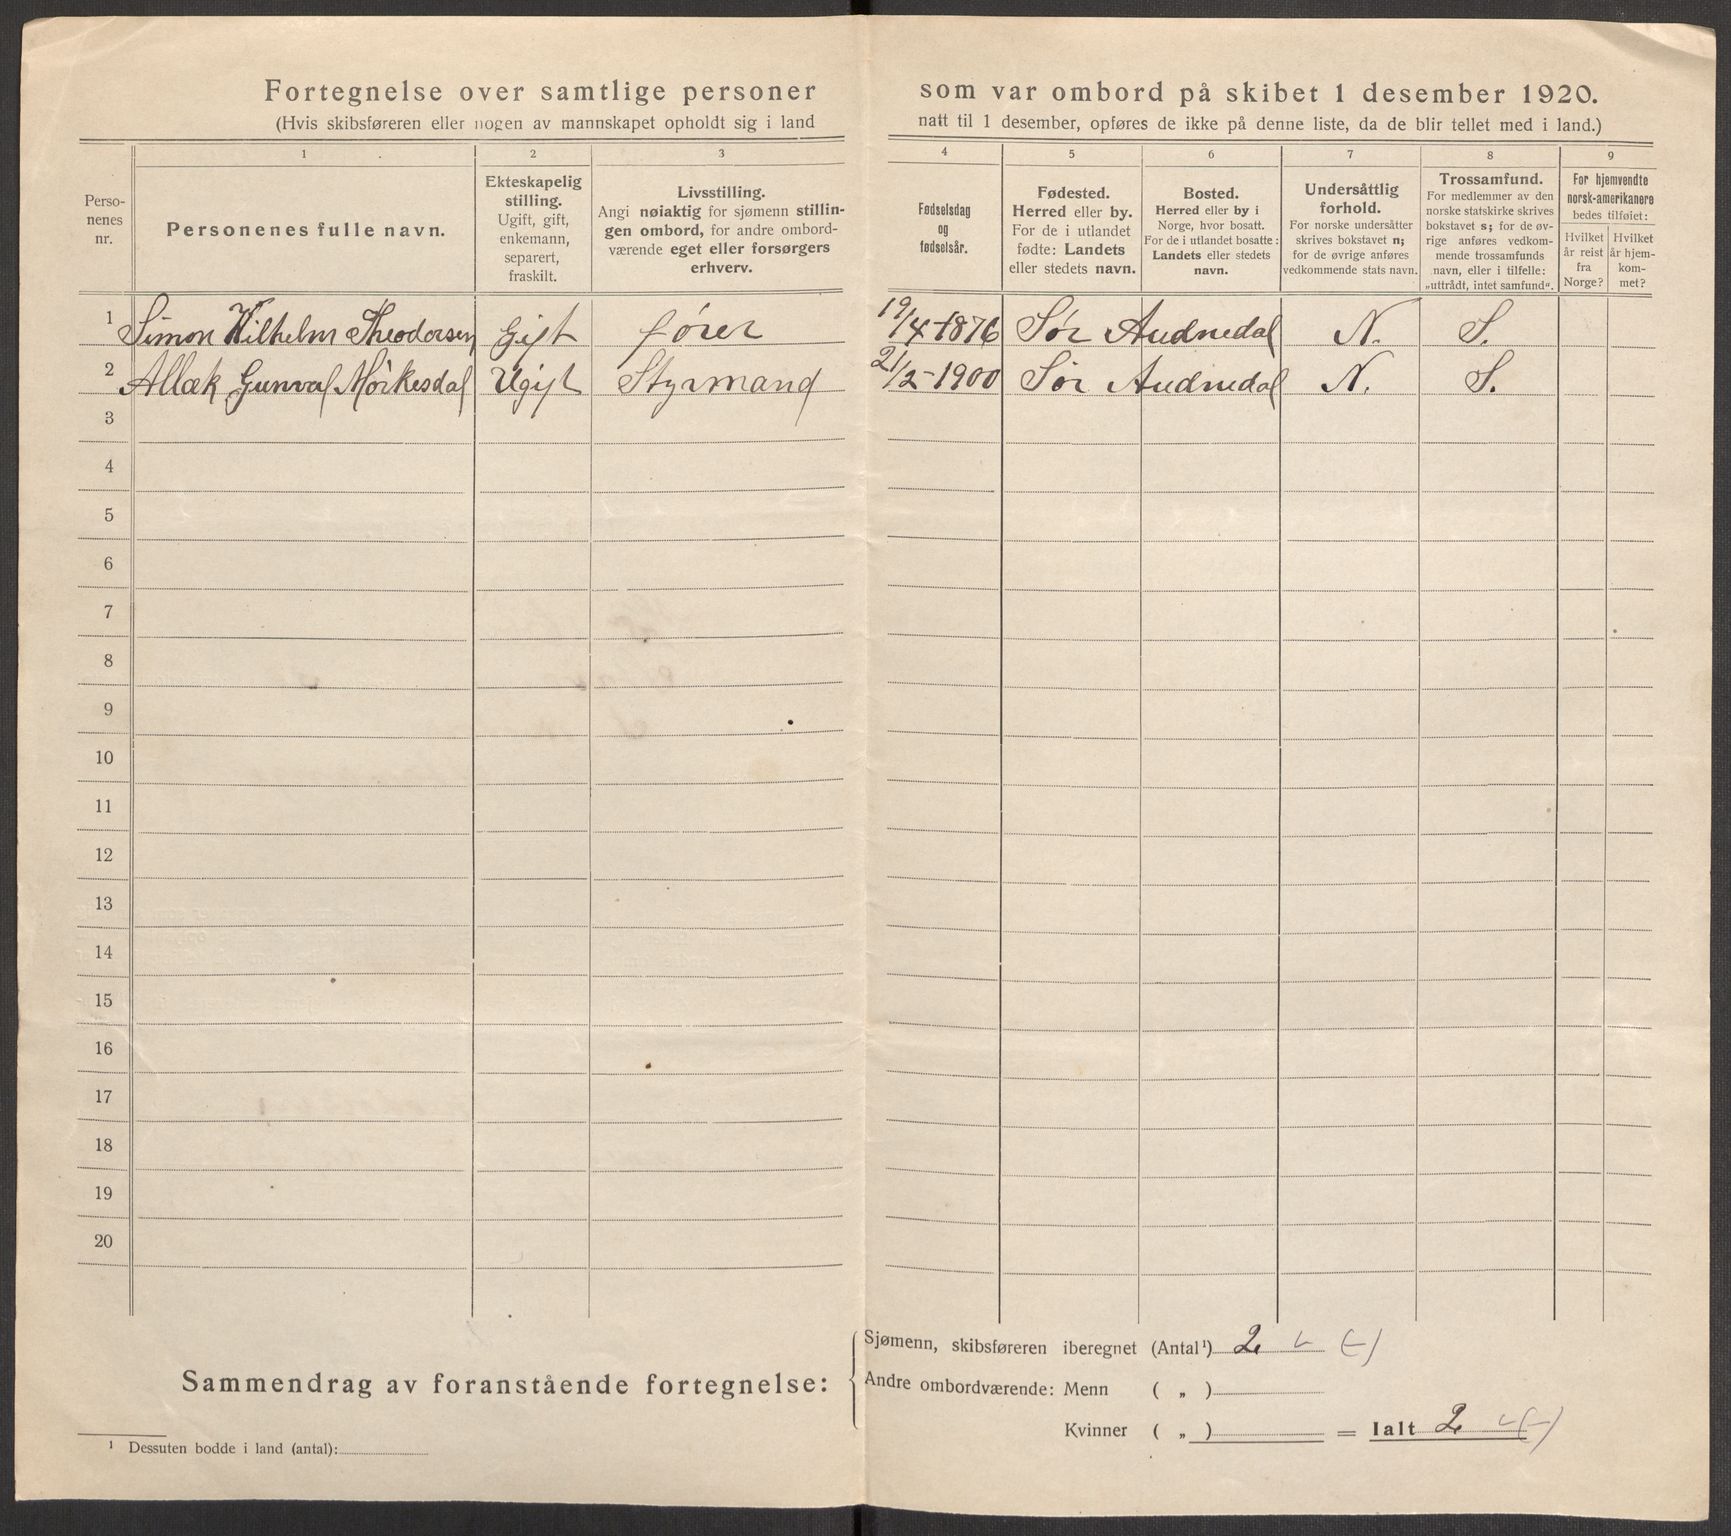 Fortegnelse over samtlige personer som var ombord på skibet 1 desember 1920.
(Hvis skibsføreren eller nogen av mannskapet opholdt sig i land natt til 1 desember, opføres de ikke på denne liste, da de blir tellet med i land.)
1 2 3 4 5 6 7 8 9
Perso-
nenes
nr.
Personenes fulle navn.
Ekteskapelig
stilling.
Ugift, gift,
enkemann,
separert,
fraskilt.
Livsstilling.
Angi nøiaktig for sjømenn stillin-
gen ombord, for andre ombord-
værende eget eller forsørgers
erhverv.
Fødselsdag
og
fødselsår.
Fødested.
Herred eller by.
For de i utlandet
fødte: Landets
eller stedets navn.
Bosted.
Herred eller by i
Norge, hvor bosatt.
For de i utlandet bosatte:
Landets eller stedets
navn.
Undersåttlig
forhold.
For norske undersåtter
skrives bokstavet n;
for de øvrige anføres
vedkommende stats navn.
Trossamfund.
For medlemmer av den
norske statskirke skrives
bokstavet s; for de øv-
rige anføres vedkom-
mende trossamfunds
navn, eller i tilfelle:
„uttrådt, intet samfund“.
For hjemvendte
norsk-amerikanere
bedes tilføiet:
Hvilket
år reist
fra
Norge?
Hvilket
år hjem-
kom-
met?
1 Simon Vilhelm Theodorsen Gift fører 19/4-1876 Sør Audnedal N. S.
2 Allæk Gunval Mørkesdal Ugift Styrmand 21/2-1900 Sør Audnedal N. S.
3
4
5
6
7
8
9
10
11
12
13
14
15
16
17
18
19
20
Sammendrag av foranstående fortegnelse:
Sjømenn, skibsføreren iberegnet (Antal¹) 2 (-)
Andre ombordværende: Menn ( „ )
Kvinner ( „ ) = Ialt 2 (-)
¹ Dessuten bodde i land (antal):